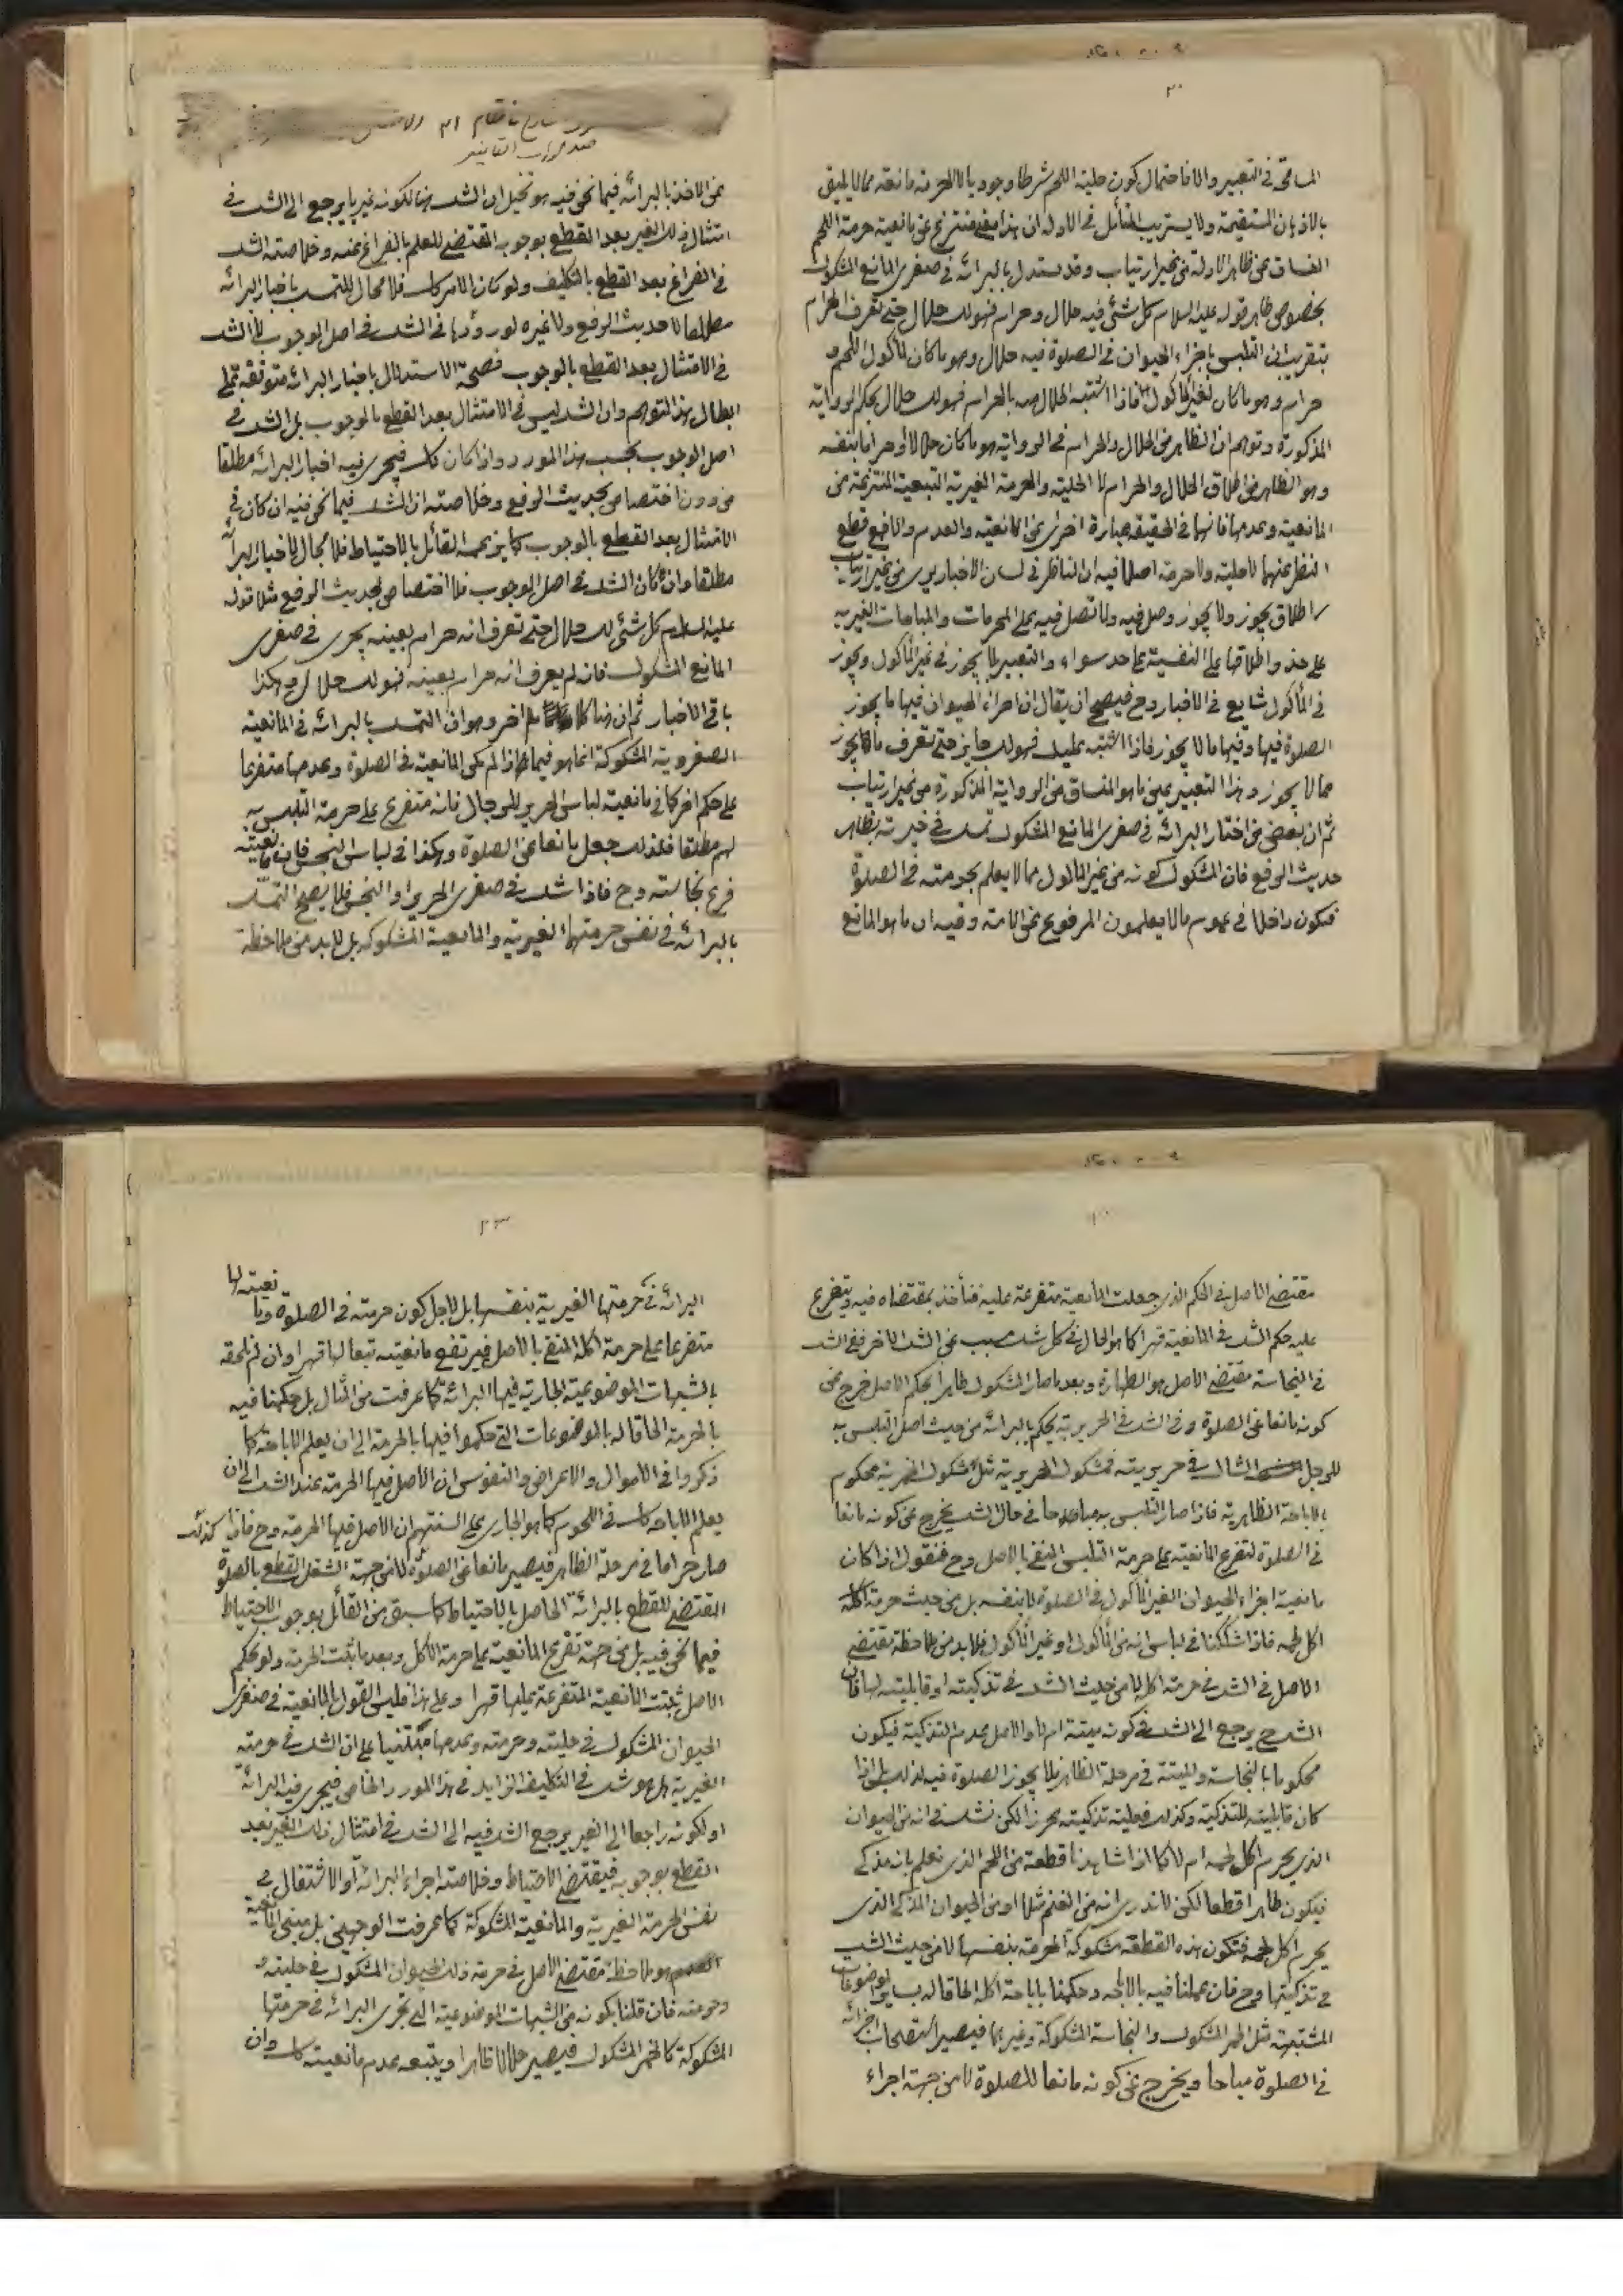 المسامحة في التعبير والا فاحتمال كون حلية اللحم شرطا وجوديا لا الحرمة مانعة مما لا يليق
بالاذهان المستقيمة ولا يستريب المتأمل في الادلة ان هذا منتزع عن مانعية حرمة اللحم
المنساق عن ظاهر الادلة من غير ارتياب وقد يستدل بالبرائة في صغرى المانع المشكوك
بخصوص ظاهر قوله عليه السلام كل شئ فيه حلال وحرام فهو لك حلال حتى تعرف الحرام
بتقريب ان التلبس باجزاء الحيوان في الصلوة فيه حلال وهو ما كان لمأكول اللحم و
حرام وهو ما كان لغير المأكول فاذا اشتبه الحلال منه بالحرام فهو لك حلال بحكم الرواية
المذكورة وتوهم ان الظاهر من الحلال والحرام في الرواية هو ما كان حلالا أو حراما بنفسه
وهو الظاهر من اطلاق الحلال والحرام لا الحلية والحرمة الغيرية التبعية المنتزعة من
المانعية وعدمها فانها في الحقيقة عبارة اخرى عن المانعية والعدم والا فمع قطع
النظر عنهما لا حلية ولا حرمة اصلا فيه ان الناظر في لسان الاخبار يرى من غير ارتياب
اطلاق يجوز ولا يجوز وصل فيه ولا تصل فيه على المحرمات والمباحات الغيرية
على حذو اطلاقها على النفسية على حد سواء والتعبير بلا يجوز في غير المأكول ويجوز
في المأكول شايع في الاخبار وح فيصح ان يقال ان اجزاء الحيوان فيها ما يجوز
الصلوة فيها وفيها ما لا يجوز فاذا اشتبه عليك فهو لك جايز حتى تعرف ما يجوز
مما لا يجوز وهذا التعبير عين ما هو المنساق من الرواية المذكورة من غير ارتياب
ثم ان بعض من اختار البرائة في صغرى المانع المشكوك تمسك في خيرته بظاهر
حديث الرفع فان المشكوك كونه من غير المأكول مما لا يعلم بحرمته في الصلوة
فيكون داخلا في عموم ما لا يعلمون المرفوع عن الامة وفيه ان ما هو المانع
عن الاخذ بالبرائة فيما نحن فيه هو تخيل ان الشك هنا لكونه غيريا يرجع الى الشك في
امتثال ذلك الغير بعد القطع بوجوبه المقتضي للعلم بالفراغ عنه وخلاصته الشك
في الفراغ بعد القطع بالتكليف ولو كان الامر كك فلا مجال للتمسك باخبار البرائة
مطلقا لا حديث الرفع ولا غيره لورودها في الشك في اصل الوجوب لا الشك
في الامتثال بعد القطع بالوجوب فصحة الاستدلال باخبار البرائة متوقفة على
ابطال هذا التوهم وان الشك ليس في الامتثال بعد القطع بالوجوب بل الشك في
اصل الوجوب بحسب هذا المورد واذا كان كك فيجرى فيه اخبار البرائة مطلقا
من دون اختصاص بحديث الرفع وخلاصته ان الشك فيما نحن فيه ان كان في
الامتثال بعد القطع بالوجوب كما يزعمه القائل بالاحتياط فلا مجال لاخبار البرائة
مطلقا وان كان الشك في اصل الوجوب فلا اختصاص بحديث الرفع مثلا قوله
عليه السلام كل شئ لك حلال حتى تعرف انه حرام بعينه يجرى في صغرى
المانع المشكوك فانه لم يعرف انه حرام بعينه فهو لك حلال وهكذا
باقي الاخبار ثم ان هنا كلام اخر وهو ان التمسك بالبرائة في المانعية
الصغروية المشكوكة انما هو فيما اذا لم يكن المانعية في الصلوة وعدمها متفرعا
على حكم اخر كما في مانعية لباس الحرير للرجال فانه متفرع على حرمة التلبس به
لهم مطلقا فلذلك جعل مانعا عن الصلوة وهكذا في لباس النجس فان مانعيته
فرع نجاسته وح فاذا شك في صغرى الحرير او النجس فلا يصح التمسك
بالبرائة في نفس حرمتها الغيرية والمانعية المشكوكة بل لابد من ملاحظة
مقتضى الاصل في الحكم الذي جعلت المانعية متفرعة عليه فنأخذ بمقتضاه فيه ويتفرع
عليه حكم الشك في المانعية قهرا كما هو الحال في كل شك مسبب عن الشك الاخر ففي الشك
في النجاسة مقتضى الاصل هو الطهارة وبعد ما صار المشكوك طاهرا بحكم الاصل خرج عن
كونه مانعا عن الصلوة وفي الشك في الحريرية يحكم بالبرائة من حيث اصل التلبس به
للرجل الشاك في حريريته فمشكوك الحريرية مثل مشكوك الخمرية محكوم
بالاباحة الظاهرية فاذا صار التلبس به مباحا في حال الشك يخرج عن كونه مانعا
في الصلوة لتفرع المانعية على حرمة التلبس المنفي بالاصل وح فنقول اذا كان
مانعية اجزاء الحيوان الغير المأكول في الصلوة لا بنفسه بل من حيث حرمة
اكل لحمه فاذا شككنا في لباس انه من المأكول او غير المأكول فلابد من ملاحظة مقتضى
الاصل في الشك في حرمة اكله لا من حيث الشك في تذكيته او قابليته لها فان
الشك ح يرجع الى الشك في كونه ميتة ام لا والاصل عدم التذكية فيكون
محكوما بالنجاسة والميتة في مرحلة الظاهر فلا يجوز الصلوة فيه لذلك بل اذا
كان قابليته للتذكية وكذلك فعلية تذكيته محرزا لكن نشك في انه من الحيوان
الذي يحرم اكل لحمه ام لا كما اذا شاهدنا قطعة من اللحم الذي نعلم بانه مذكى
فيكون طاهرا قطعا لكن لا ندري انه من الغنم مثلا او من الحيوان المذكى الذي
يحرم اكل لحمه فتكون هذه القطعة مشكوكة الحرمة بنفسها لا من حيث الشك
في تذكيتها وح فان عملنا فيه بالاباحة وحكمنا باباحة اكله الحاقا له بساير موضوعات
المشتبهة مثل الخمر المشكوك والنجاسة المشكوكة وغيرهما فيصير استصحاب اجزائه
في الصلوة مباحا ويخرج عن كونه مانعا للصلوة لا من جهة اجراء
٢٣
البرائة في حرمتها الغيرية بنفسها بل لاجل كون حرمته في الصلوة ومانعيته لها
متفرعا على حرمة اكله المنفي بالاصل فيرتفع مانعيته تبعا لها قهرا وان لم نلحقه
بالشبهات الموضوعية الجارية فيها البرائة كما عرفت من المثال بل حكمنا فيه
بالحرمة الحاقا له بالموضوعات التي حكموا فيها بالحرمة الى ان يعلم الاباحة كما
ذكروا في الاموال والاعراض والنفوس ان الاصل فيها الحرمة عند الشك الى ان
يعلم الاباحة كك في اللحوم كما هو الجاري على السنتهم ان الاصل فيها الحرمة وح فاذا كذلك
صار حراما في مرحلة الظاهر فيصير مانعا عن الصلوة لا من جهة الشغل القطع بالصلوة
المقتضي للقطع بالبرائة الحاصل بالاحتياط كما سبق من القائل بوجوب الاحتياط
فيما نحن فيه بل من جهة تفريع المانعية على حرمة الاكل وبعد ما ثبت الحرمة ولو بحكم
الاصل ثبتت المانعية المتفرعة عليها قهرا وعلى هذا فليس القول بالمانعية في صغرى
الحيوان المشكوك في حليته وحرمته وعدمها مبتنيا على ان الشك في حرمته
الغيرية هل هو شك في التكليف الزايد في هذا المورد الخاص فيجرى فيه البرائة
او لكونه راجعا الى الغير يرجع الشك فيه الى الشك في امتثال ذلك الغير بعد
القطع بوجوبه فيقتضى الاحتياط وخلاصته اجراء البرائة او الاشتغال في
نفس الحرمة الغيرية والمانعية المشكوكة كما عرفت الوجهين بل مبنى المانعية
هو ملاحظة مقتضى الاصل في حرمة ذلك الحيوان المشكوك في حليته و
حرمته فان قلنا بكونه من الشبهات الموضوعية التي تجرى البرائة في حرمتها
المشكوكة كالخمر المشكوك فيصير حلالا ظاهرا ويتبعه عدم مانعيته كك وان